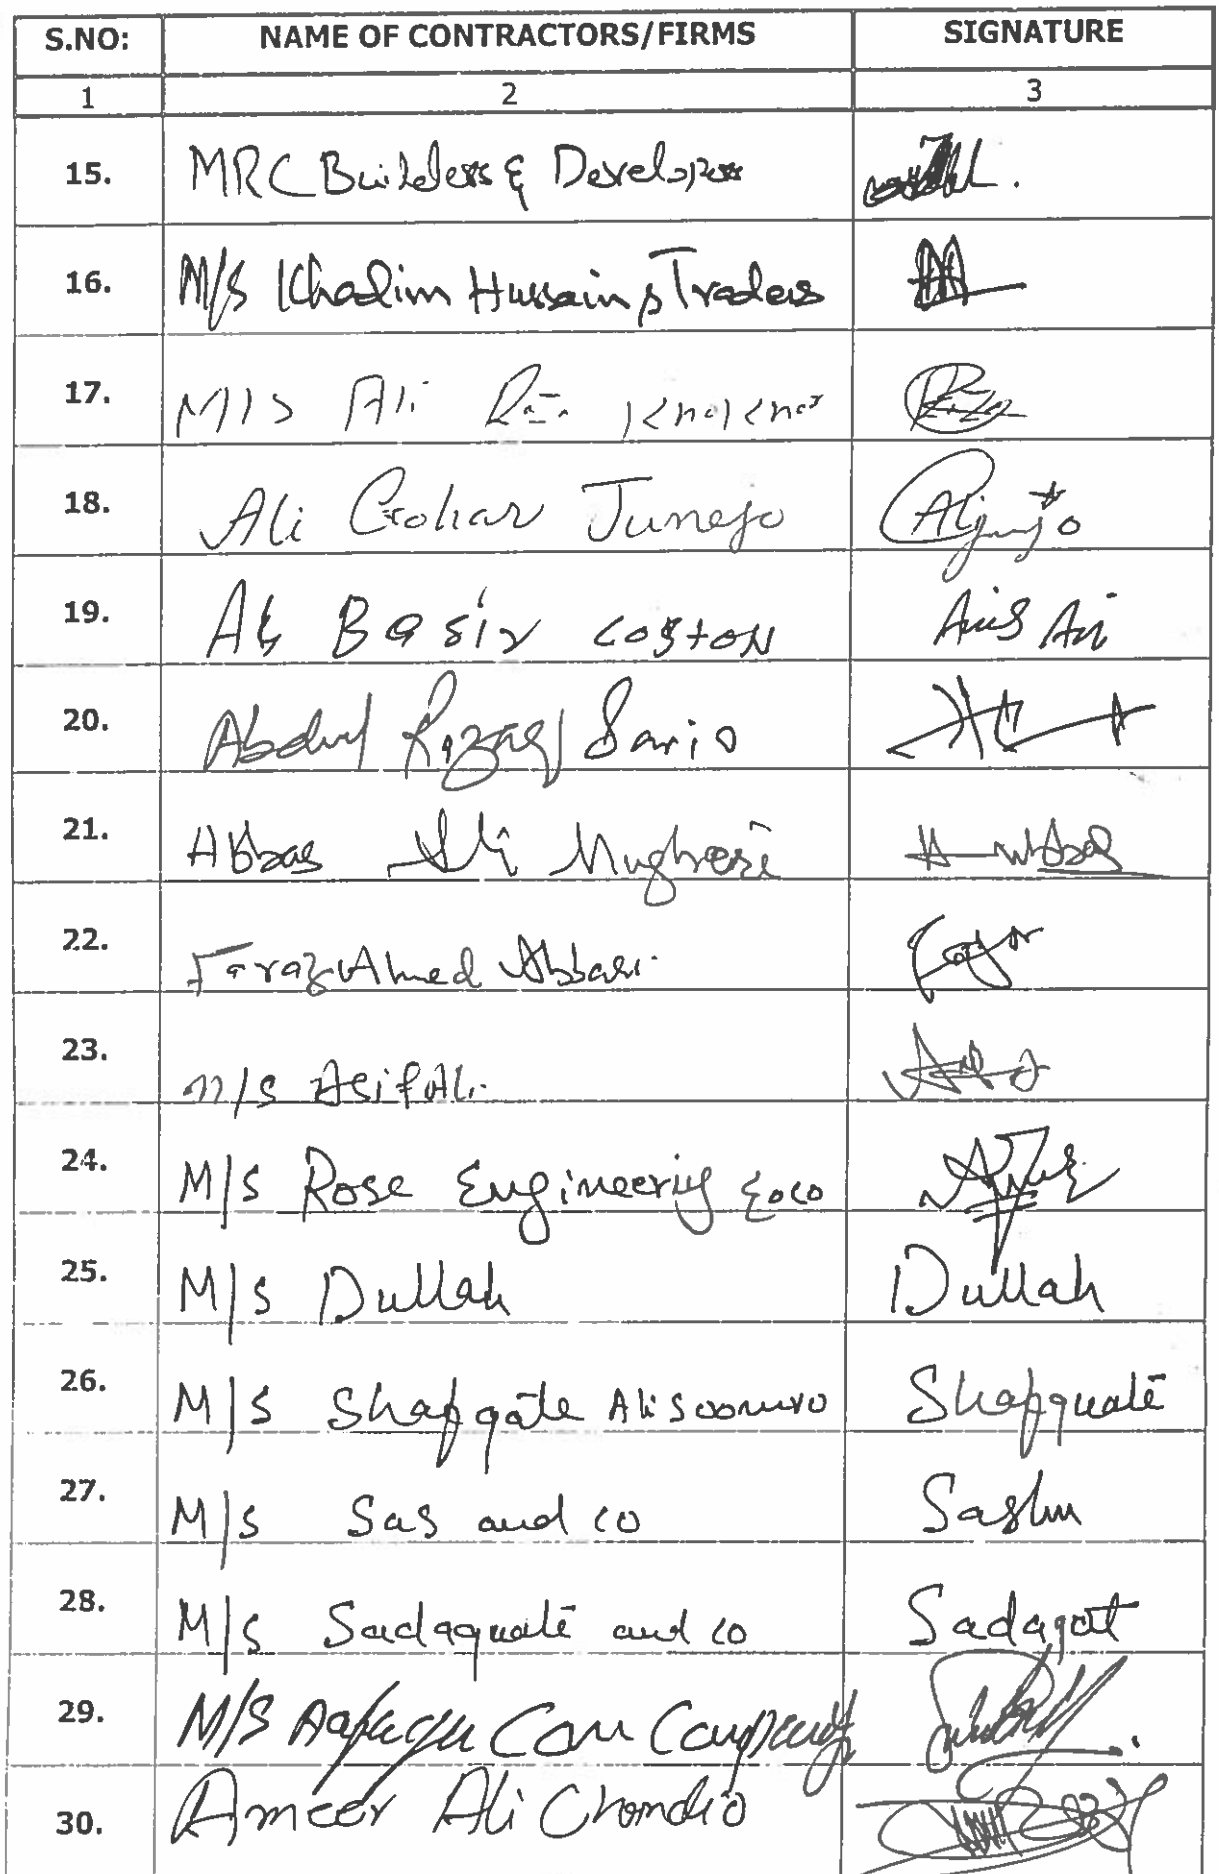 S.NO: NAME OF CONTRACTORS/FIRMS SIGNATURE
1 2 3
15. MRC Builders & Developers
16. M/S Khadim Hussain Traders
17. M/S Ali Khokhar
18. Ali Gohar Junejo
19. Basir
20. Abdul Razaq Sario
21. Abbas Ali Mugheri Abbas
22. Faraz Ahmed Abbasi
23. M/S Asif Ali
24. M/S Rose Engineering & co
25. M/S Dullah Dullah
26. M/S Shafqate Ali Soomro Shafquate
27. M/S Sas and co
28. M/S Sadaquate and co Sadaqat
29. M/S Con Company
30. Ameer Ali Chandio